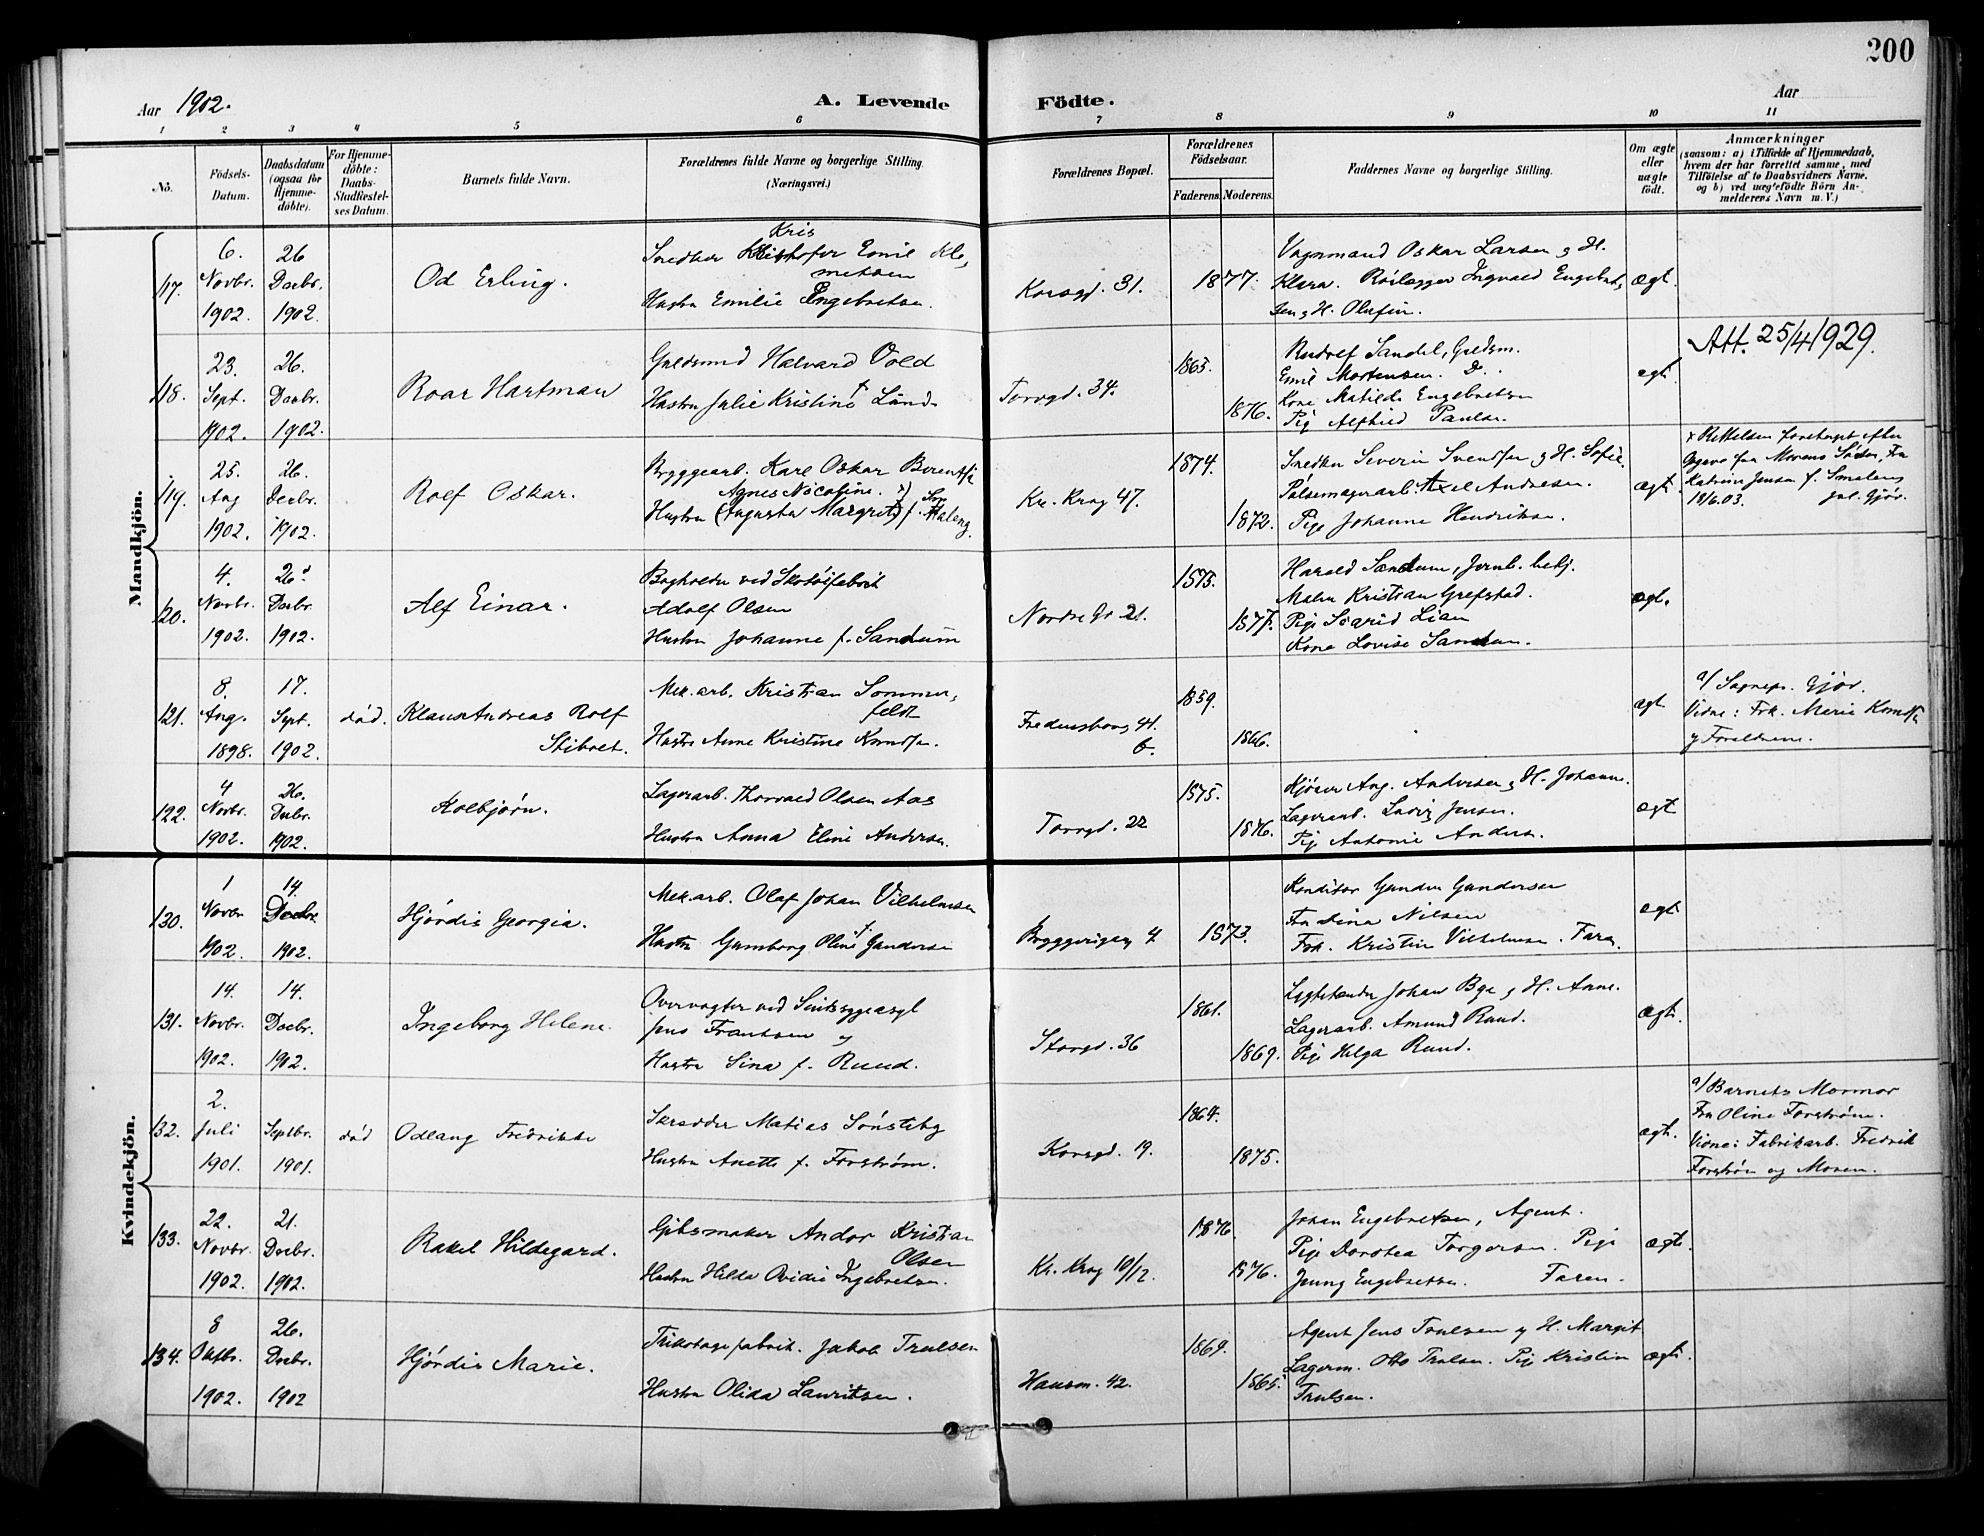 200
Aar 1902.
A. Levende Födte.
Aar
1 2 3 4 5 6 7 8 9 10 11
No.
Födsels-Datum.
Daabsdatum (ogsaa for Hjemme-döbte).
For Hjemme-döbte: Daabs-Stadfæstel-ses Datum.
Barnets fulde Navn.
Forældrenes fulde Navne og borgerlige Stilling.
(Næringsvei.)
Forældrenes Bopæl.
Forældrenes Födselsaar.
Faderens. Moderens.
Faddernes Navne og borgerlige Stilling.
Om ægte eller uægte födt.
Anmærkninger
(saasom: a) i Tilfælde af Hjemmedaab,
hvem der har forrettet samme, med
Tilföielse af to Daabsvidners Navne.
og b) ved uægtefödte Börn An-
melderens Navn m. V.)
Mandkjön.
117.
6. Novbr. 1902.
26 Decbr. 1902.
Od Erling.
Kris
Snedker Emil Kle,
metsen
Hustru Emilie Engebretsen.
Korsgd. 31.
1877.
Vognmand Oskar Larsen og H.
Klara. Rörlægger Ingvald Engebret,
sen og H. Olufin.
ægt.
118.
23. Sept. 1902.
26. Decbr. 1902.
Roar Hartman
Guldsmed Halvard Vold
Hustru Julie Kristine f. Lund.
Torvgd. 34.
1863.
1876.
Rudolf Sandel, Guldsm.
Emil Mortensen. D..
Kone Matilde Engebretsen
Pig Alfhild Paulsen
ægt.
Att. 25/4 1929.
119.
25. Aug 1902.
26. Decbr. 1902.
Rolf Oskar.
Bryggearb. Karl Oskar Berentsen
Agnes Nicoline. x)
Hustru (Augusta Margrit) f.
Kr. Krog 47.
1874.
1872.
Snedker Severin Svendsen og H. Sofie.
Pölsemagerarb. Axel Andresen.
Pige Johanne Hendriksen.
ægt.
x Rettelsen foretaget efter
Opgave fra Morens Söster, Fru
Katrine Jensen f. Smaleng
18/6.03.
120.
4. Novbr. 1902.
26. Decbr. 1902.
Alf Einar.
Bogholder ved Skotöifabrik
Adolf Olsen
Hustru Johanne f. Sandum
Nordre Gd 21.
1875.
1877.
Harald Sandum, Jernb. betj.
Maler Kristian Grefstad.
Pige Sigrid Lian
Kone Lovise Sandum.
ægt.
121.
8. Aug. 1898.
17. Sept. 1902.
död.
Klaus Andreas Rolf
Stibolt.
Mek. arb. Kristian Sommer,
feldt
Hustru Anne Kristine Knudsen.
Fredensborg 41.
b.
1859.
1866.
ægt
a/ Sognepr. Gjör.
Vidne: Frk. Marie Knudsen
og Forældrene.
122.
4 Novbr. 1902.
26. Decbr. 1902.
Kolbjörn.
Lagerarb. Thorvald Olsen Aas
Hustru Anna Eline Andersen.
Torvgd. 22
1875.
1876.
Kjörer Aug. Andersen og H. Johanne.
Lagerarb. Ludvig Jensen.
Pige Antonie Andersen.
ægt
Kvindekjön.
130.
1 Novbr 1902.
14. Decbr. 1902.
Hjördis Georgia.
Mek. arb. Olaf Johan Vilhelmsen
Hustru Gunborg Oline f. Gundersen
Bryggerigen 4
1873.
Konditor Gunder Gundersen
Fru Dina Nilsen
Frk. Kristin Vilhelmsen. Faren.
ægt
131.
14. Novbr. 1902.
14. Decbr. 1902.
Ingeborg Helene.
Overvogter ved Sindssygeasyl
Jens Frantsen og
Hustru Sina f. Ruud.
Storgd. 36
1861.
1869.
Lygtetænder Johan Bye og H. Anne.
Lagerarb. Amund Ruud.
Pige Helga Ruud.
ægt.
132.
2. Juli 1901.
Septbr. 1901.
död
Odlaug Fredrikke
Skrædder Matias Sönsteby
Hustru Anette f. Forström.
Korsgd. 19.
1864.
1875.
ægt.
a/ Barnets Mormor
Fru Oline Forström.
Vidne: Fabrikarb. Fredrik
Forström og Moren.
133.
22. Novbr. 1902.
21. Decbr. 1902.
Rakel Hildegard.
Gibsmaker Andor Kristian
Olsen
Hustru Hilda Ovidie Ingebretsen.
Kr. Krog 10/12.
1876.
1876.
Johan Engebretsen, Agent.
Pige Dorotea Torgersen. Pige
Jenny Engebretsen. Faren.
ægt.
134.
8 Oktbr. 1902.
26. Decbr. 1902
Hjördis Marie.
Trikotagefabrik. Jakob Trulsen
Hustru Olida Lauritsen.
Hausm. 42.
1869.
1865.
Agent Jens Trulsen og H. Margit
Lagerm. Otto Trulsen. Pige Kristin
Trulsen.
ægt.